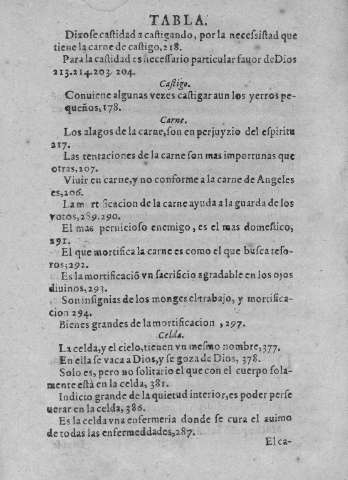 TABLA.
Dizose castidad a castigando, por la necessistad que
tiene la carne de castigo, 218.
Para la castidad es necessario particular fauor de Dios
213.214.203. 204.
Castigo.
Conuiene algunas vezes castigar aun los yerros pe-
queños, 178.
Carne.
Los alagos de la carne, son en perjuyzio del espiritu
217.
Las tentaciones de la carne son mas importunas que
otras, 207.
Viuir en carne, y no conforme a la carne de Angeles
es, 206.
La mortificacion de la carne ayuda a la guarda de los
votos, 289.290.
El mas pernicioso enemigo, es el mas domestico,
291.
El que mortifica la carne es como el que busca teso-
ros, 292.
Es la mortificació vn sacrificio agradable en los ojos
diuinos, 293.
Son insignias de los monges el trabajo, y mortifica-
cion 294.
Bienes grandes de la mortificacion, 297.
Celda.
La celda, y el cielo, tienen vn mesmo nombre, 377.
En ella se vaca a Dios, y se goza de Dios, 378.
Solo es, pero no solitario el que con el cuerpo sola-
mente está en la celda, 381.
Indicto grande de la quietud interior, es poder perse
uerar en la celda, 386.
Es la celda vna enfermeria donde se cura el auimo
de todas las enfermeddades, 287.
El ca-